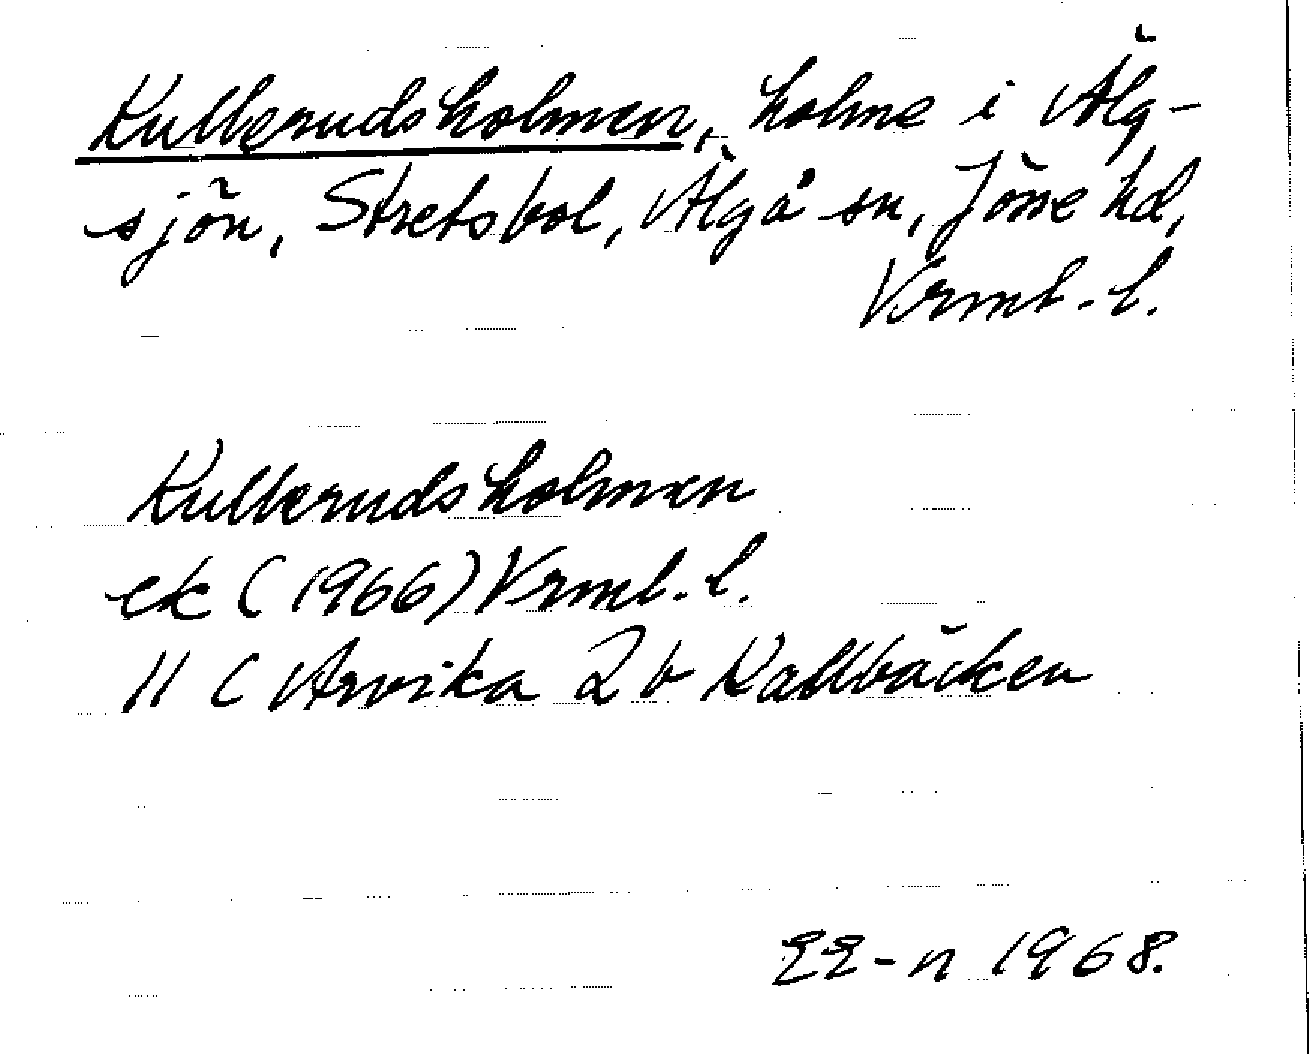 Kullerudsholmen, holme i Älg-
sjön, Stretsbol, Älgå sn, Jösse hd,
Vrml. l.
Kullerudsholmen
ek (1966) Vrml. l.
11 C Arvika 2 b Kallbäcken
EE-n 1968.